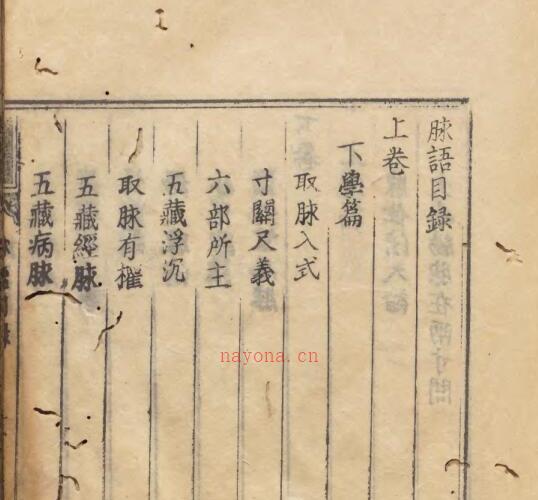 脉語目録
上卷
下學篇
取脉入式
寸關尺義
六部所主
五藏浮沉
取脉有權
五藏經脉
五藏病脉
nayona.cn